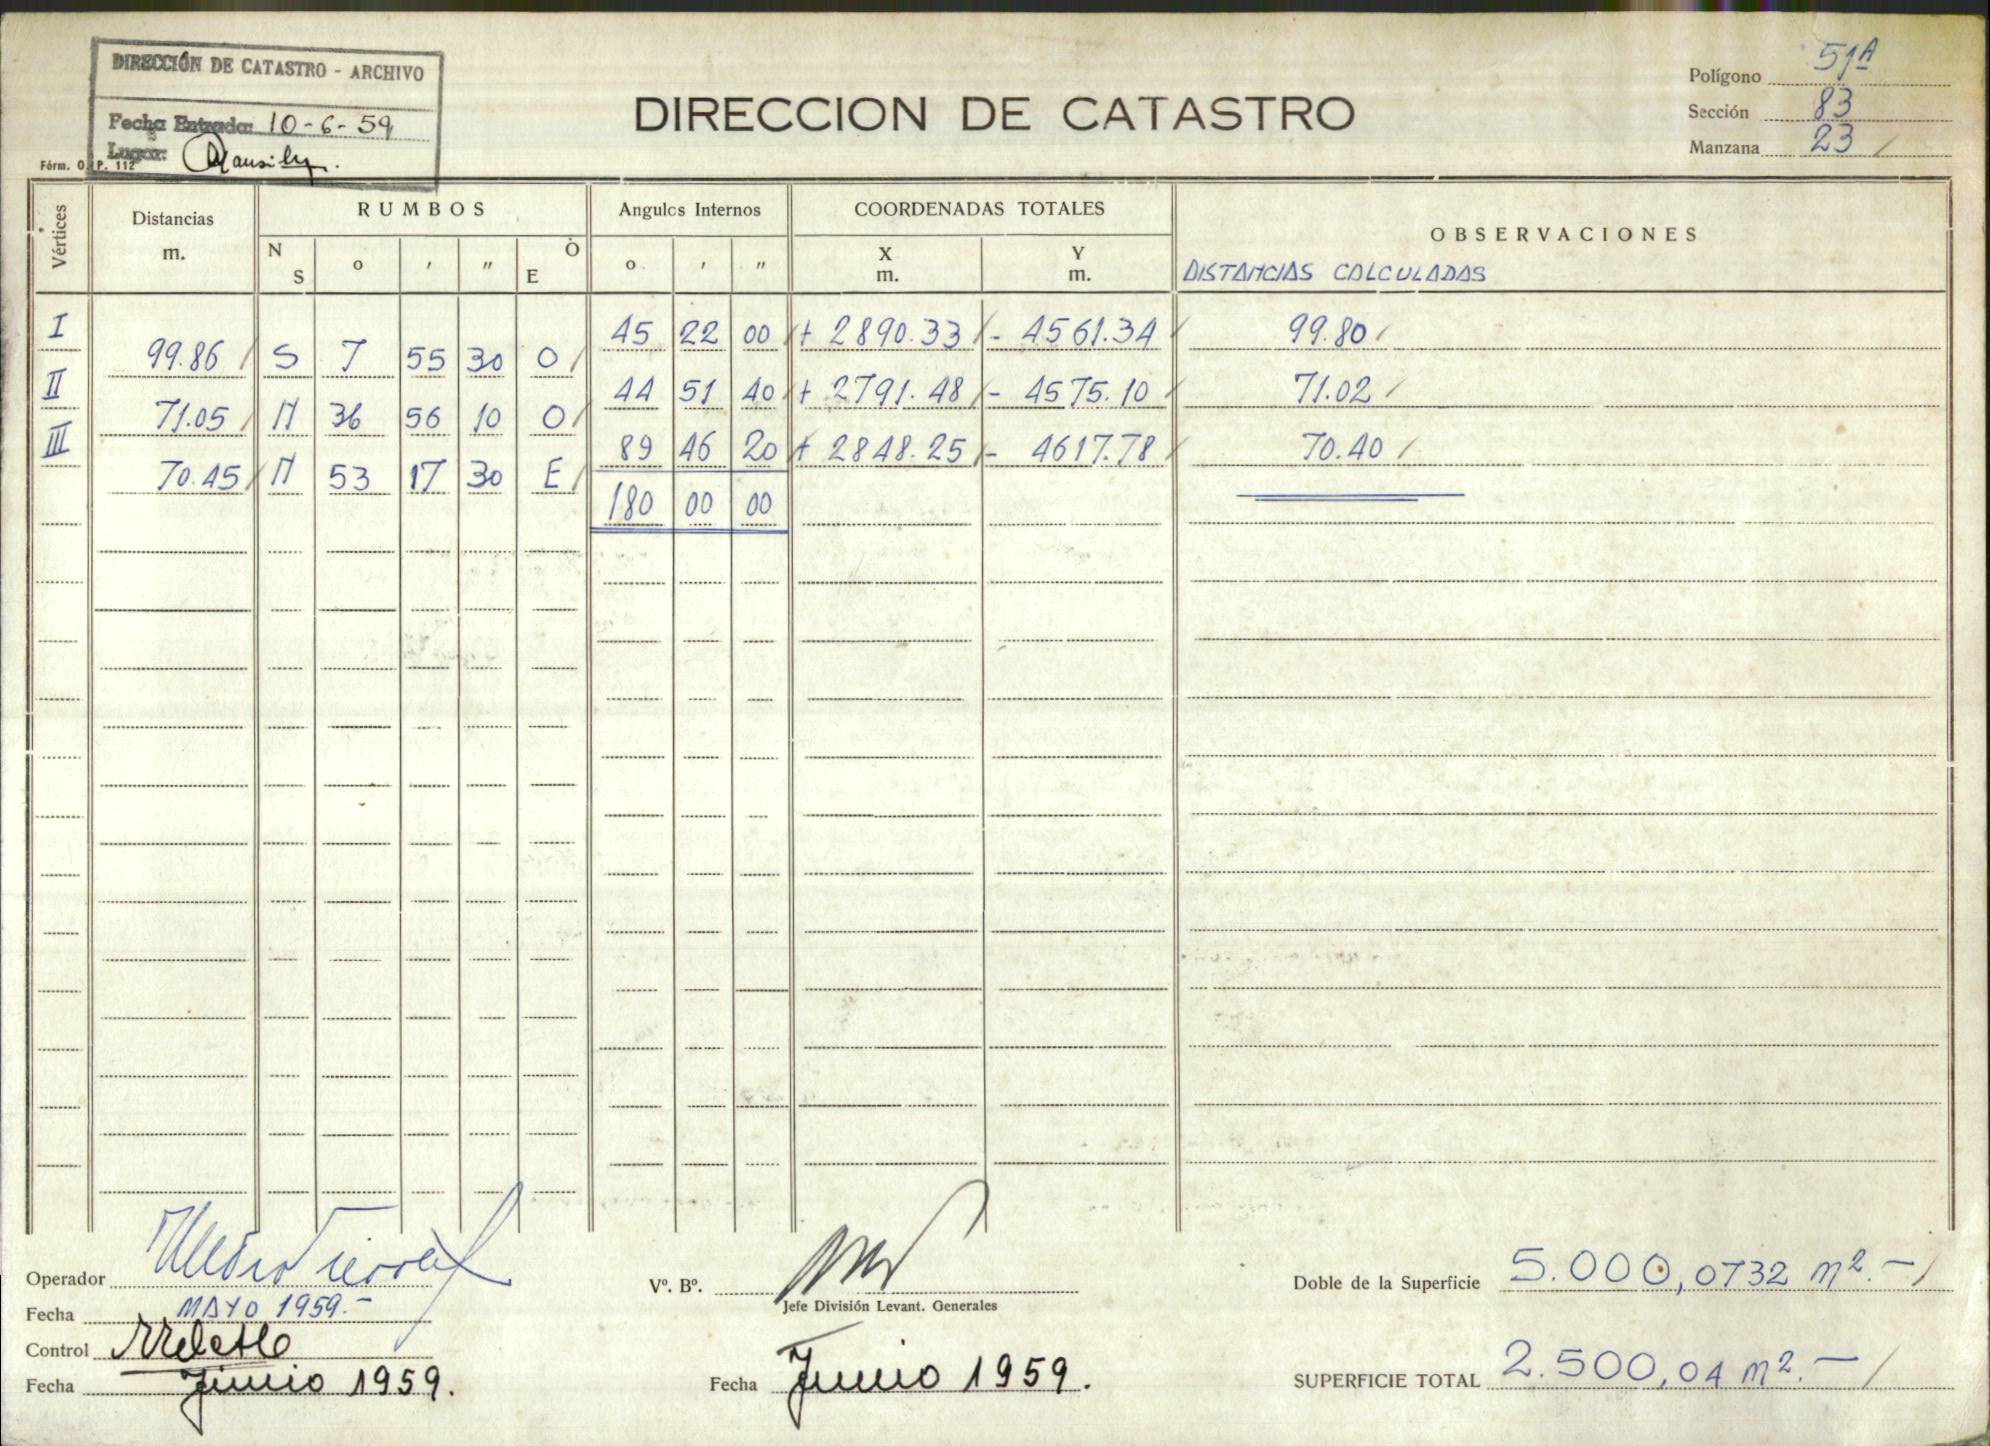 DIRECCIÓN DE CATASTRO - ARCHIVO
Fecha Entrada: 10-6-59
Lugar:
Fórm. O. P. 112
DIRECCION DE CATASTRO
Polígono 51A
Sección 83
Manzana 23 /
Vértices
Distancias
m.
RUMBOS
N S o ′ ″ E O
Angulos Internos
o ′ ″
COORDENADAS TOTALES
X
m.
Y
m.
OBSERVACIONES
DISTANCIAS CALCULADAS
I 45 22 00 / + 2890.33 / - 4561.34 / 99.80 /
99.86 / S 7 55 30 O /
II 44 51 40 / + 2791.48 / - 4575.10 / 71.02 /
71.05 / N 36 56 10 O /
III 89 46 20 / + 2848.25 / - 4617.78 / 70.40 /
70.45 / N 53 17 30 E /
180 00 00
Operador
Fecha MAYO 1959.-
Control
Fecha Junio 1959.
Vº. Bº.
Jefe División Levant. Generales
Fecha Junio 1959.
Doble de la Superficie 5.000,0732 m2.- /
SUPERFICIE TOTAL 2.500,04 m2.- /